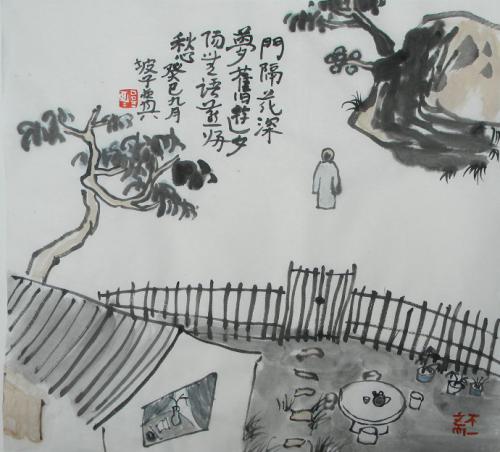 門隔花深
夢舊遊夕
陽無語燕歸
愁 癸巳九月
坡子